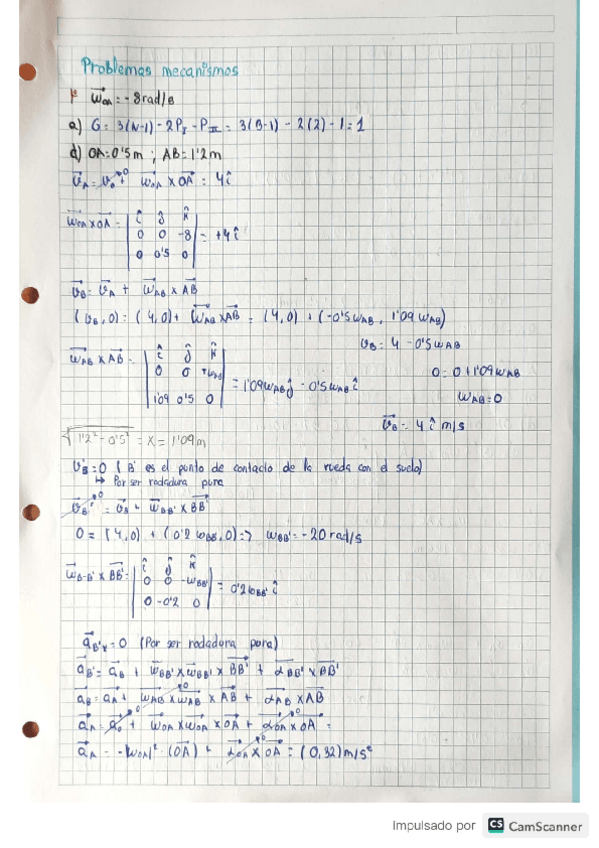 Problemas mecanismos
1º ω⃗OA = -8 rad/s
a) G = 3(N-1) - 2PI - PII = 3(3-1) - 2(2) - 1 = 1
d) OA = 0'5 m ; AB = 1'2 m
v⃗A = v⃗o + ω⃗OA x OA = 4î
ω⃗OA x OA = | î ĵ k̂ | = +4î
0 0 -8
0 0'5 0
v⃗B = v⃗A + ω⃗AB x AB
(vB, 0) = (4,0) + ω⃗AB x AB = (4,0) + (-0'5 ωAB, 1'09 ωAB)
vB = 4 - 0'5 ωAB
ω⃗AB x AB = | î ĵ k̂ | = 1'09 ωAB ĵ - 0'5 ωAB î
0 0 +ωAB
1'09 0'5 0
0 = 0 + 1'09 ωAB
ωAB = 0
v⃗B = 4 î m/s
√1'2² - 0'5² = x = 1'09 m
vB' = 0 (B' es el punto de contacto de la rueda con el suelo)
↳ Por ser rodadura pura
v⃗B' = v⃗B + ω⃗BB' x BB'
0 = (4,0) + (0'2 ωBB', 0) => ωBB' = -20 rad/s
ω⃗B-B' x BB' = | î ĵ k̂ | = 0'2 ωBB' î
0 0 -ωBB'
0 -0'2 0
a⃗B'x = 0 (Por ser rodadura pura)
a⃗B' = a⃗B + ω⃗BB' x ω⃗BB' x BB' + α⃗BB' x BB'
a⃗B = a⃗A + ω⃗AB x ω⃗AB x AB + α⃗AB x AB
a⃗A = a⃗o + ω⃗OA x ω⃗OA x OA + α⃗OA x OA =
a⃗A = -|ωOA|² · (OA) + α⃗OA x OA = (0, 32) m/s²
Impulsado por CS CamScanner